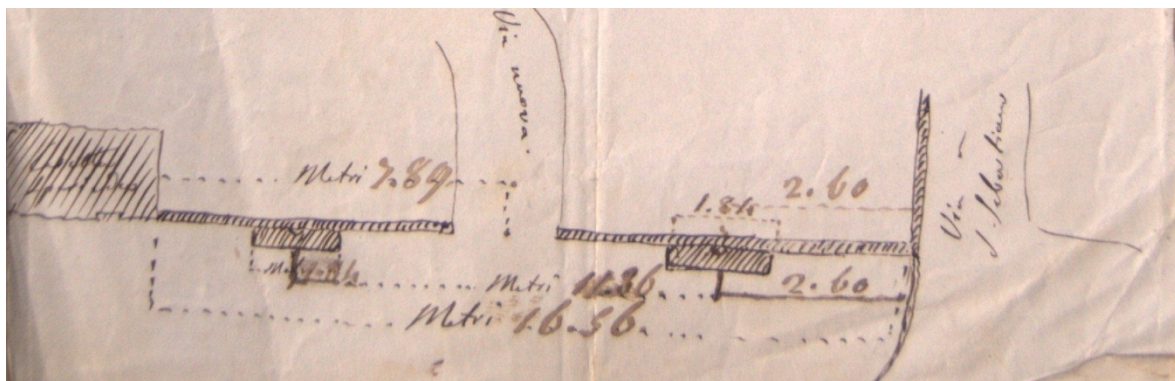 Via nuova.
Metri 7.89
2.60
1.84
Via
S. Sebastiano
Metri 11.36
2.60
Metri 16.56